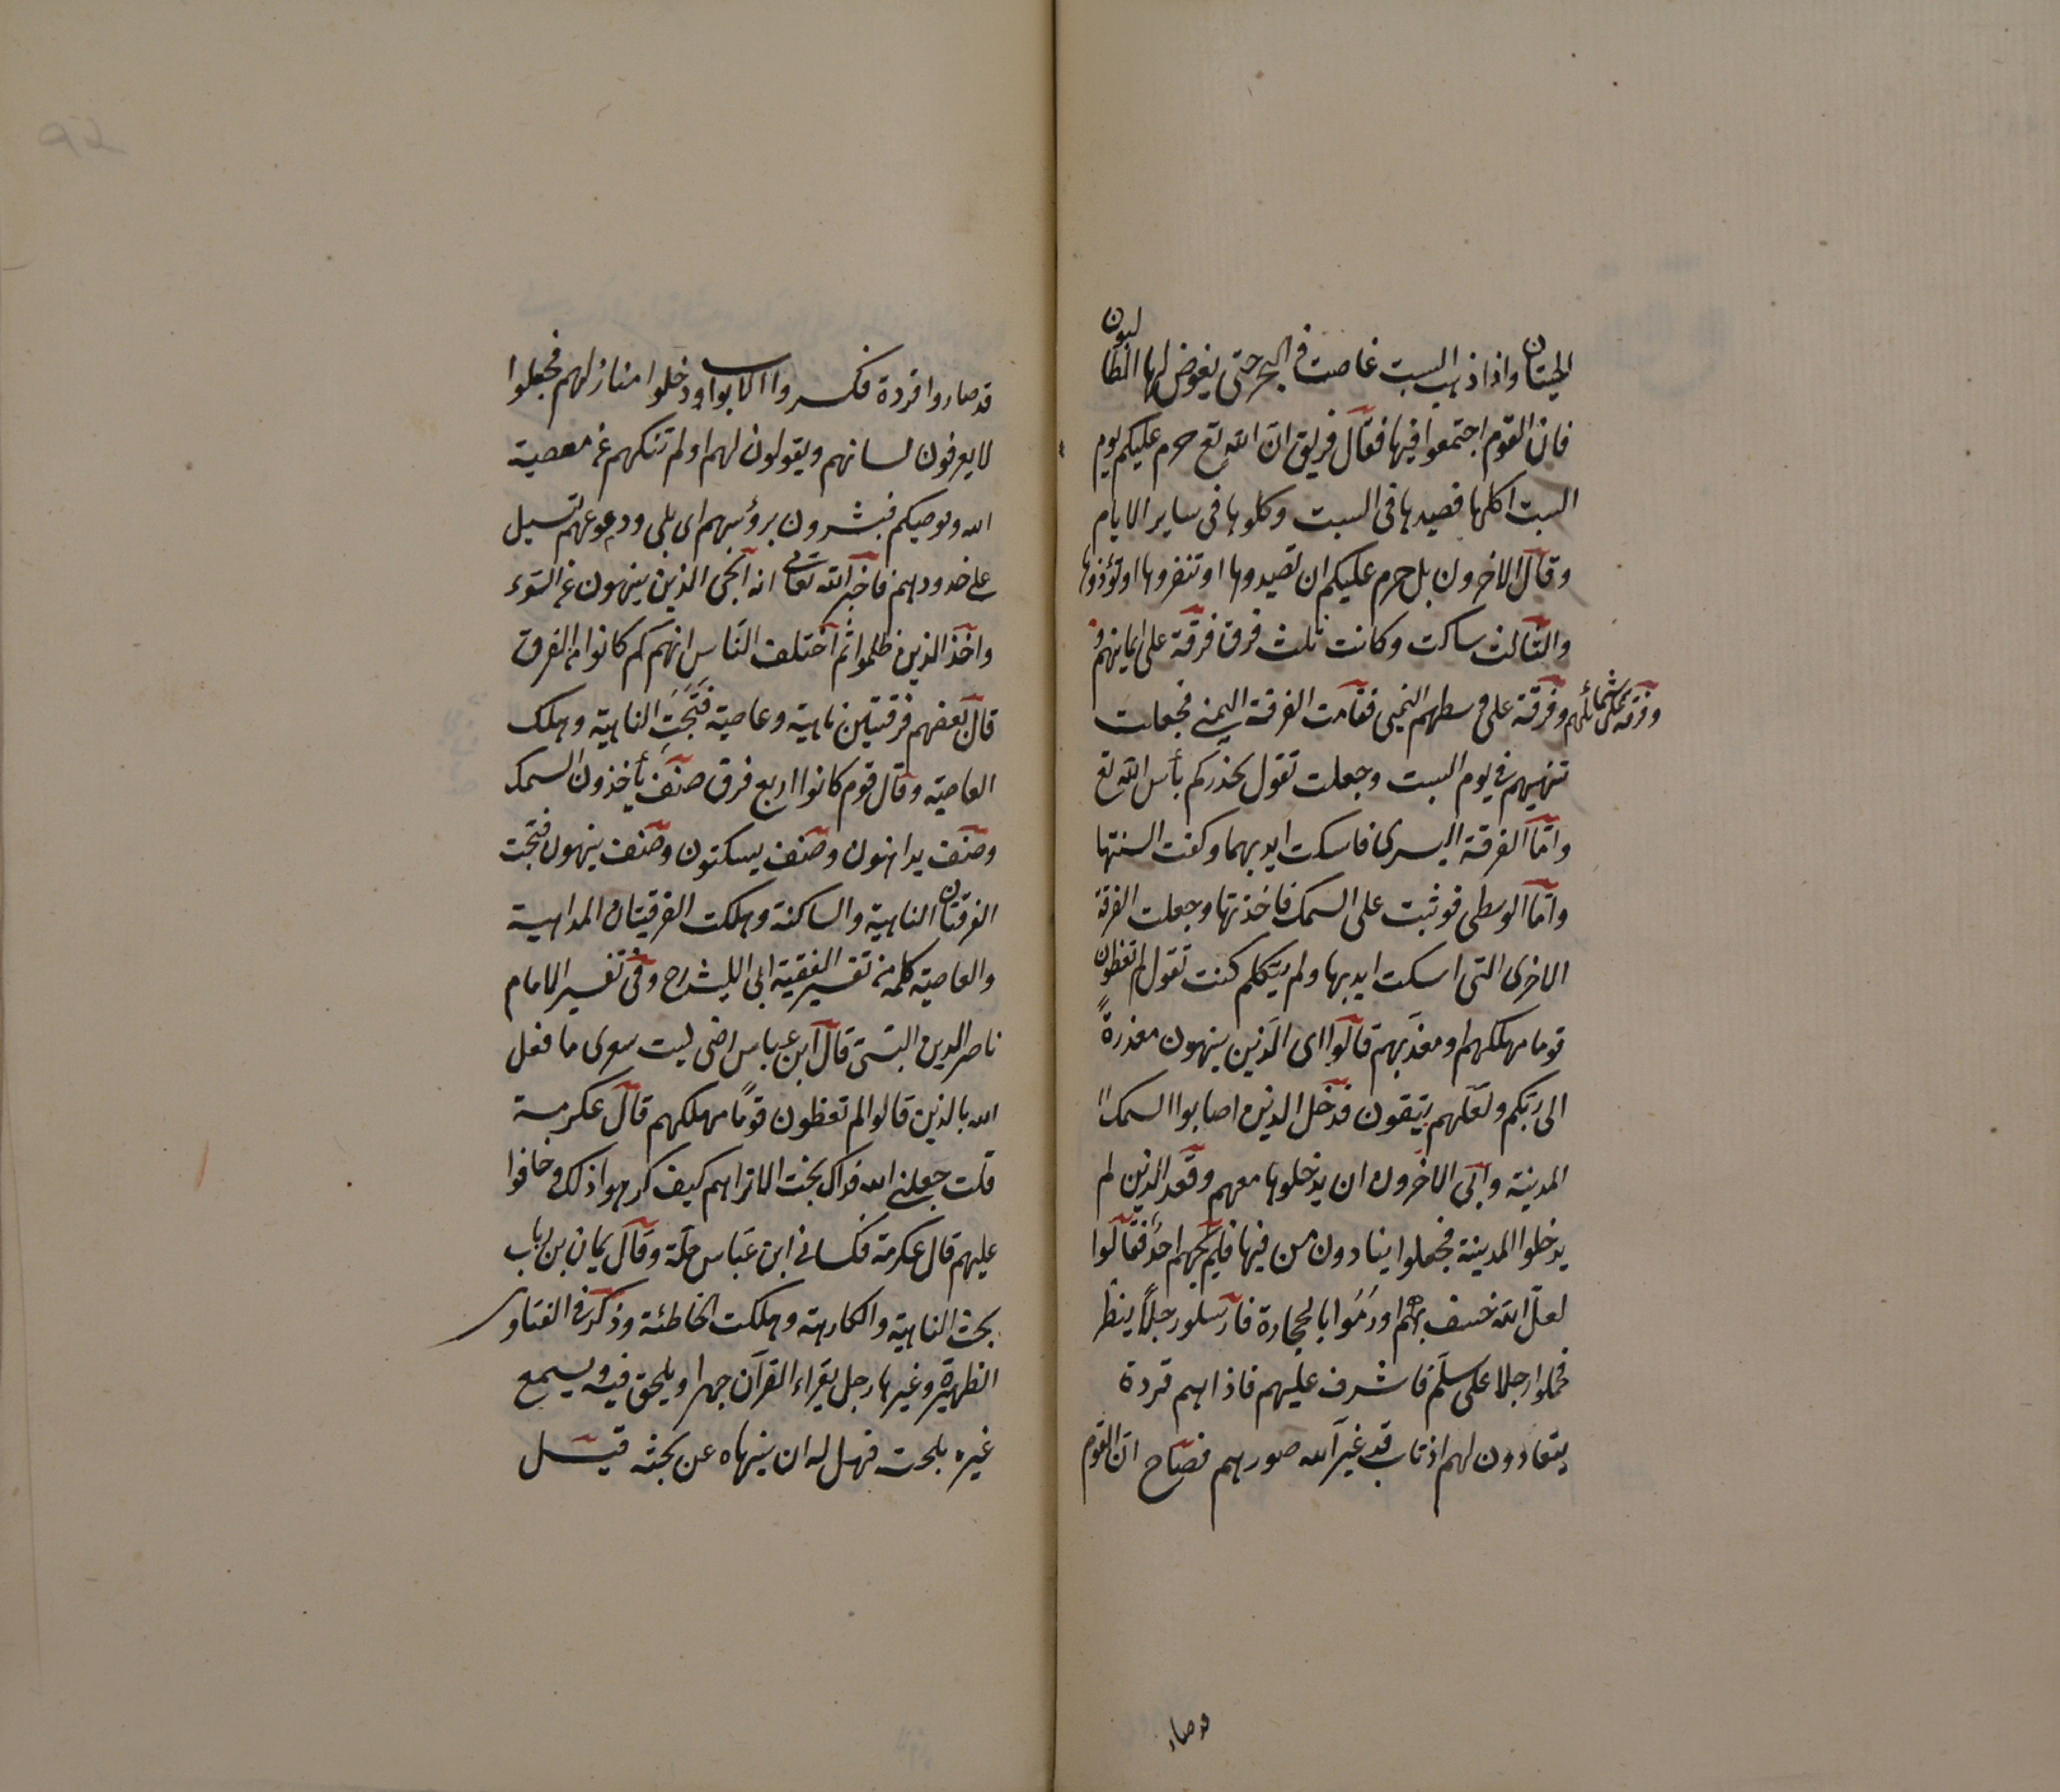 الحيتان واذا ذهب السبت غاصت في البحر حتى يغوض لها الطالبون
فان القوم اجتمعوا فيها فقال فريق ان الله تع حرم عليكم يوم
السبت اكلها فصيدها في السبت وكلوها في ساير الايام
وقال الاخرون بل حرم عليكم ان تصيدوها او تنفروها او تؤذوها
والثالث ساكت وكانت ثلث فرق فرقة على ايمانهم و
وفرقة على شمائلهم وفرقة على وسطهم فقامت الفرقة اليمنى فجعلت
تنهيهم في يوم السبت وجعلت تقول نحذركم بأس الله تع
واما الفرقة اليسرى فاسكت ايديهما وكفت السنتها
واما الوسطى فوثبت على السمك فاخذتها وجعلت الفرقة
الاخرى التي اسكت ايديها ولم يتكلم كنت تقول لم تعظون
قوما مهلكهم او معذبهم قالوا اى الذين ينهون معذرة
الى ربكم ولعلهم يتقون فدخل الذين اصابوا السمك
المدينة وابى الاخرون ان يدخلوها معهم وقعد الذين لم
يدخلوا المدينة فجعلوا ينادون من فيها فلم يجبهم احد فقالوا
لعل الله خسف بهم او رموا بالحجارة فارسلو رجلا ينظر
فحملوا رجلا على سلم فاشرف عليهم فاذا هم قردة
يتعادون لهم اذناب قد غير الله صورهم فصاح ان القوم
قد صاروا قردة فكسروا الابواب ودخلوا منازلهم فجعلوا
لا يعرفون لسانهم ويقولون لهم او لم ننهكم عن معصية
الله ونوصيكم فيشرون برؤسهم اى بلى ودموعهم تسيل
على خدودهم فاخبر الله تعالى انه انجى الذين ينهون عن السوء
واخذ الذين ظلموا ثم اختلف الناس انهم كم كانوا من الفرق
قال بعضهم فرقتين ناهية وعاصية فنجت الناهية وهلك
العاصية وقال قوم كانوا اربع فرق صنف يأخذون السمك
وصنف يداهنون وصنف يسكتون وصنف ينهون فنجت
الفرقتان الناهية والساكتة وهلكت الفرقيتان المداهية
والعاصية كله من تفسير الفقية ابى الليث رح وفي تفسير الامام
ناصر الدين البستي قال ابن عباس رضى ليت شعرى ما فعل
الله بالذين قالوا لم تعظون قوما مهلكهم قال عكرمة
قلت جعلني الله فداك نجت الا تراهم كيف كرهوا ذلك وخافوا
عليهم قال عكرمة فكساني ابن عباس حلة وقال يمان بن رباب
نجت الناهية والكارهة وهلكت الخاطئة وذكر في الفتاوى
الظهيرة وغيرها رجل يقراء القرآن جهرا ويلحق فيه ويسمع
غيره بلحت فهل له ان ينهاه عن بحثه قيل